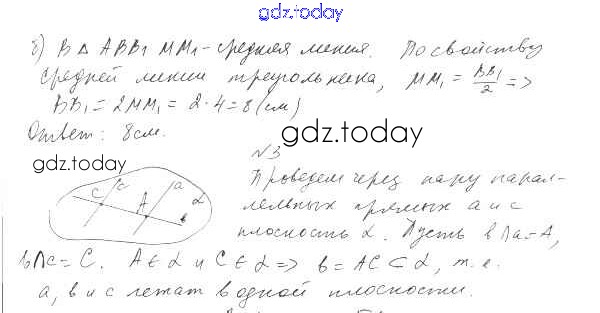 gdz.today
б) В △ ABB₁ MM₁ - средняя линия. По свойству
средней линии треугольника, MM₁ = BB₁/2 =>
BB₁ = 2MM₁ = 2·4 = 8 (см)
Ответ: 8 см.
gdz.today
gdz.today
N3
Проведем через пару парал-
лельных прямых a и c
плоскость α. Пусть b∩a = A,
c c A a α b
b∩c = C. A ∈ α и C ∈ α => b = AC ⊂ α, т.е.
a, b и c лежат в одной плоскости.